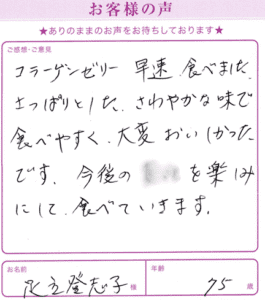 お客様の声
★ありのままのお声をお待ちしております★
ご感想・ご意見
コラーゲンゼリー 早速、食べました。
さっぱりとした、さわやかな味で
食べやすく、大変おいしかった
です。今後の を楽しみ
にして、食べていきます。
お名前
年齢
足立登志子 様
75 歳